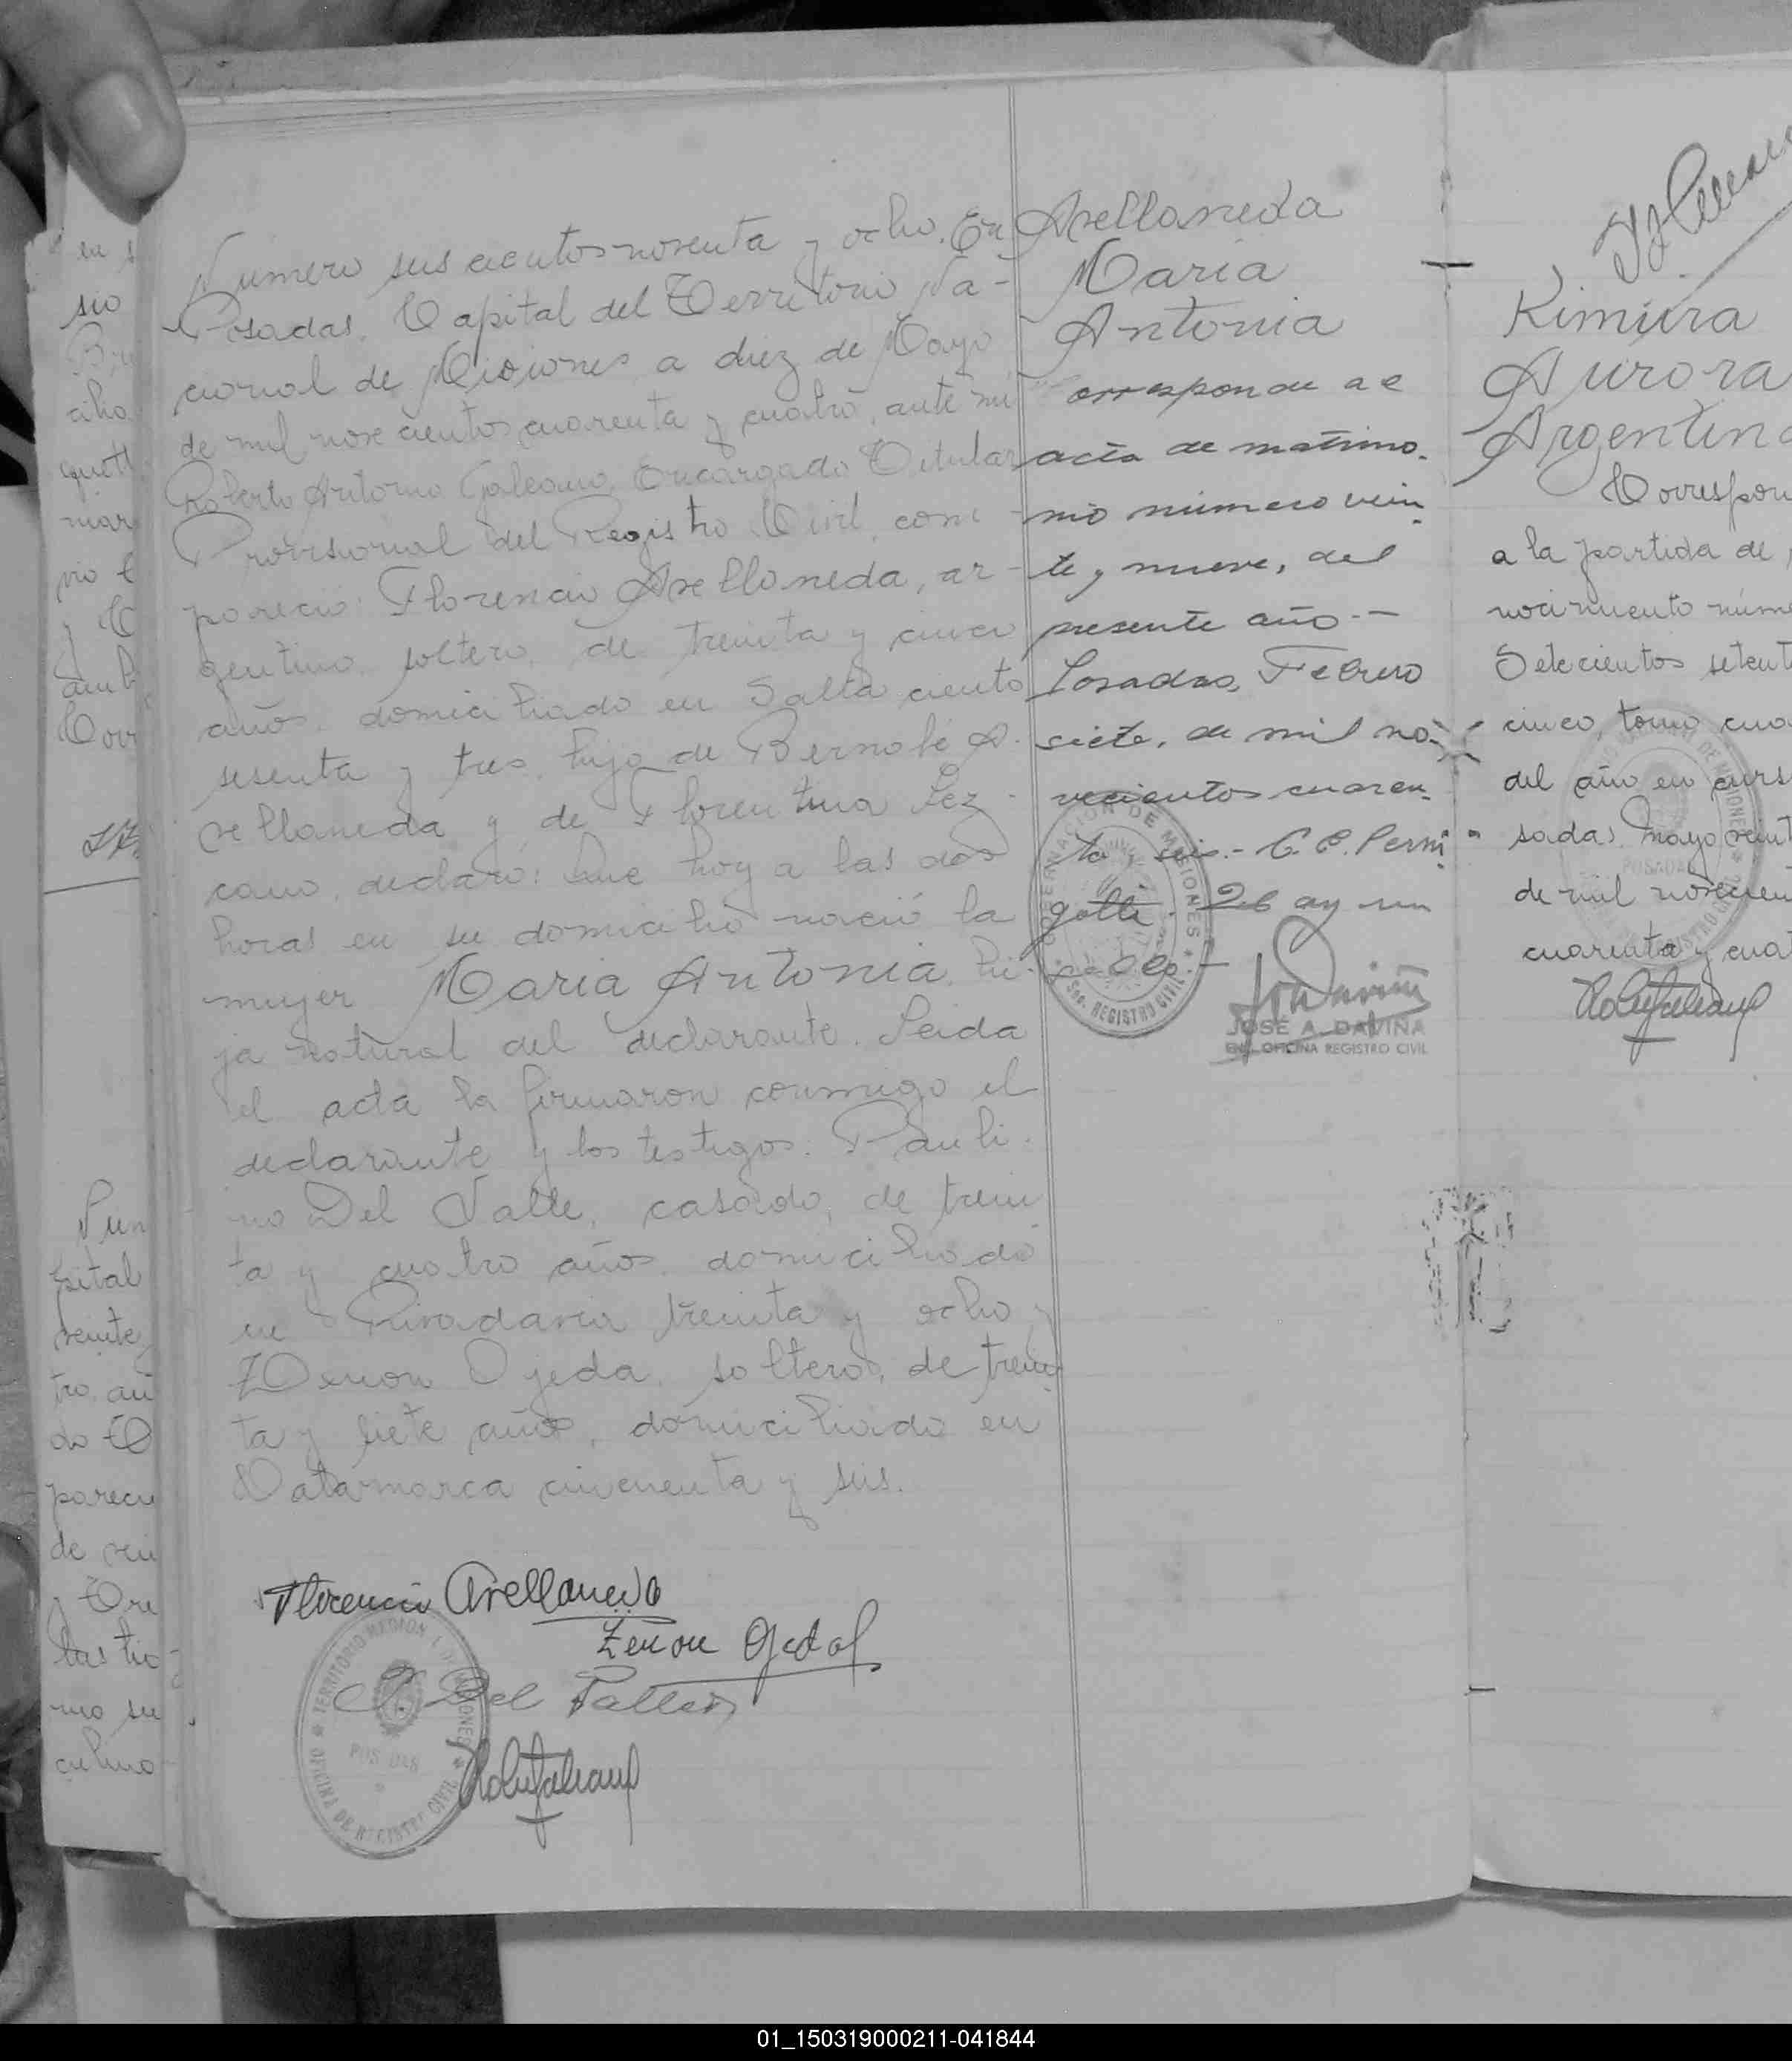 Numero seis cientos noventa y ocho. En
Posadas, Capital del Territorio Na-
cional de Misiones a diez de Mayo
de mil nove cientos cuarenta y cuatro, ante mi
Roberto Antonio Galeano, Encargado Titular
Provisional del Registro Civil, com-
pareció: Florencio Avellaneda, ar-
gentino, soltero, de treinta y cinco
años, domiciliado en Salta ciento
sesenta y tres, hijo de Bernabé A-
vellaneda y de Florentina Lez-
cano, declaró: Que hoy a las dos
horas en su domicilio nació la
mujer Maria Antonia, hi-
ja natural del declarante. Leida
el acta la firmaron conmigo el
declarante y los testigos: Pauli-
no Del Valle, casado, de trein
ta y cuatro años, domiciliado
en Rivadavia treinta y ocho y
Zenon Ojeda, soltero, de trein
ta y siete años, domiciliado en
Catamarca cincuenta y seis.
Florencio Avellaneda
Zenon Ojeda
Del Valle
TERRITORIO NACIONAL DE MISIONES
POSADAS
OFICINA DE REGISTRO CIVIL
Avellaneda
Maria
Antonia
orresponde a e
acta de matrimo-
nio número vein
te y nueve, del
presente año.-
Posadas, Febrero
siete, de mil no-
vecientos cuaren-
ta y seis.-
GOBERNACION DE MISIONES
Sec. REGISTRO CIVIL
JOSE A. DAVIÑA
ENC. OFICINA REGISTRO CIVIL
Kimura
Aurora
Argentina
Correspon
a la partida de
nocimiento núme
Setecientos setent
cinco, tomo cua
del año en curs
sadas, mayo veint
de mil novecien
cuarenta y cuat
POSADAS
en s
sio
cilio
mar
Num
pital
veinte
tro, añ
parecu
de vein
01_150319000211-041844